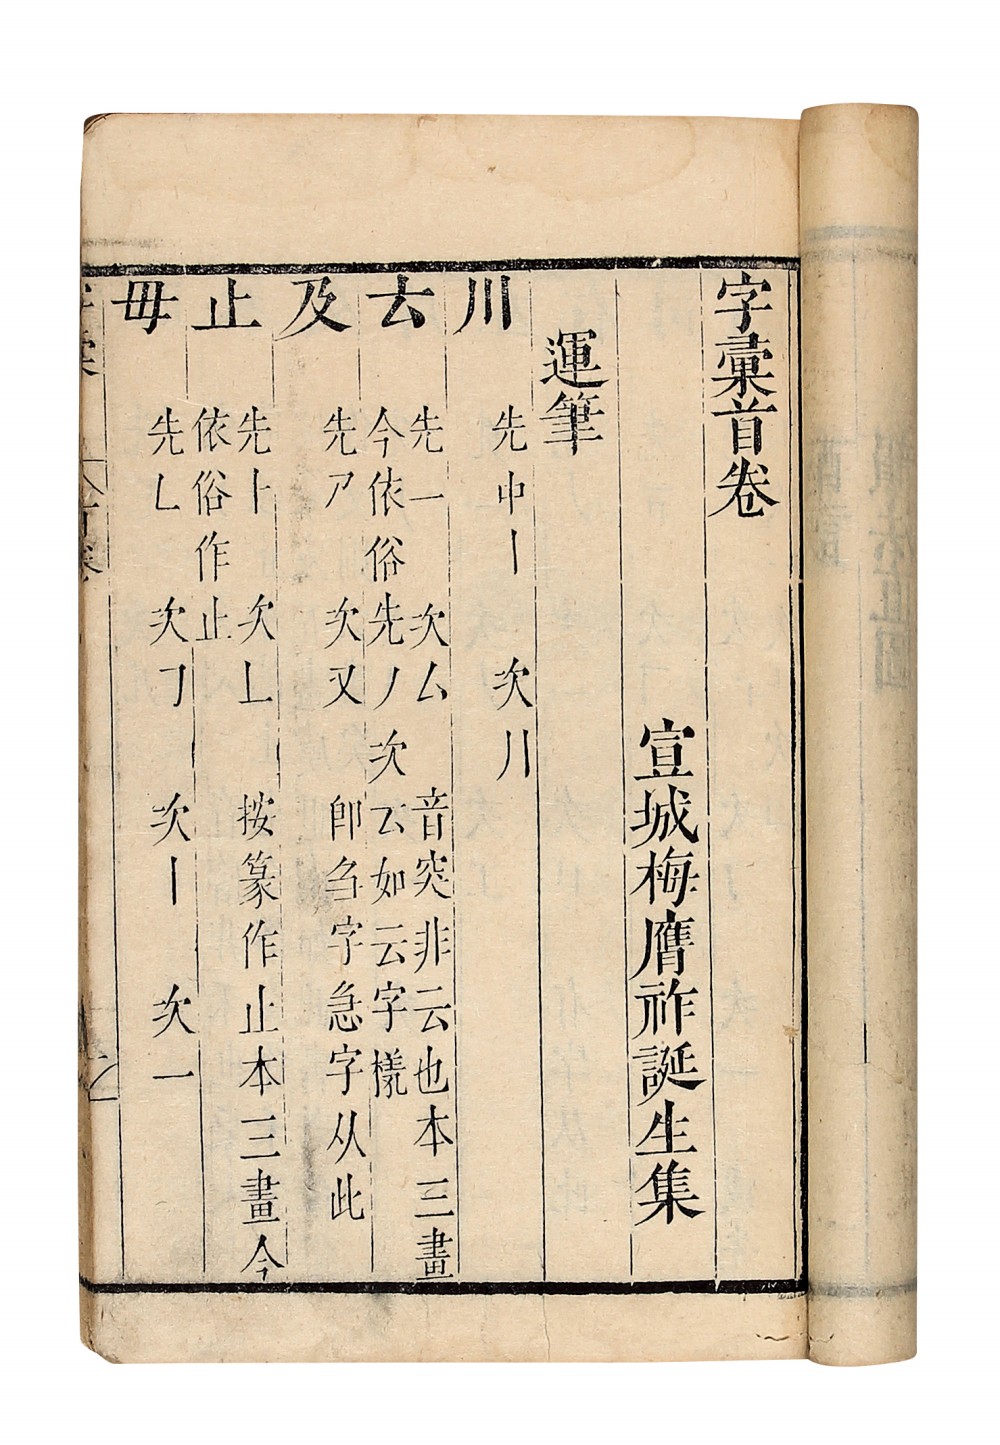 字彙首卷
宣城梅膺祚誕生集
運筆
川 先中丨 次川
𠫓 先一 次厶 音突非云也本三畫
今依俗先丿次云如云字樣
及 先乃 次又 卽刍字急字从此
止 先⺊ 次丄 按篆作止本三畫今
依俗作止
毋 先𠃊 次𠃌 次丨 次一
字彙 首卷